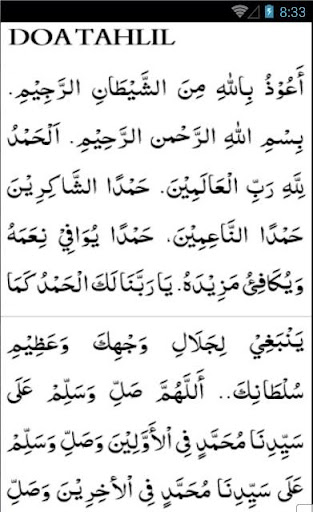 8:33
DOA TAHLIL
أَعُوْذُ بِاللهِ مِنَ الشَّيْطَانِ الرَّجِيْمِ.
بِسْمِ اللهِ الرَّحْمنِ الرَّحِيْمِ. اَلْحَمْدُ
لِلَّهِ رَبِّ الْعَالَمِيْنَ. حَمْدًا الشَّاكِرِيْنَ
حَمْدًا النَّاعِمِيْنَ، حَمْدًا يُوَافِيْ نِعَمَهُ
وَيُكَافِئُ مَزِيْدَهُ. يَا رَبَّنَا لَكَ الْحَمْدُ كَمَا
يَنْبَغِيْ لِجَلَالِ وَجْهِكَ وَعَظِيْمِ
سُلْطَانِكَ.. أَللَّهُمَّ صَلِّ وَسَلِّمْ عَلَى
سَيِّدِنَا مُحَمَّدٍ فِي اْلأَوَّلِيْنَ وَصَلِّ وَسَلِّمْ
عَلَى سَيِّدِنَا مُحَمَّدٍ فِي اْلآخِرِيْنَ وَصَلِّ